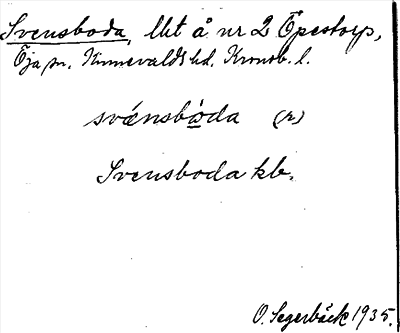 Svensboda, lht å nr 2 Öpestorp,
Öja sn. Kinnevalds hd. Kronob. l.
svä́nsbo̲da (r)
Svensboda kb.
O. Segerbäck 1935.